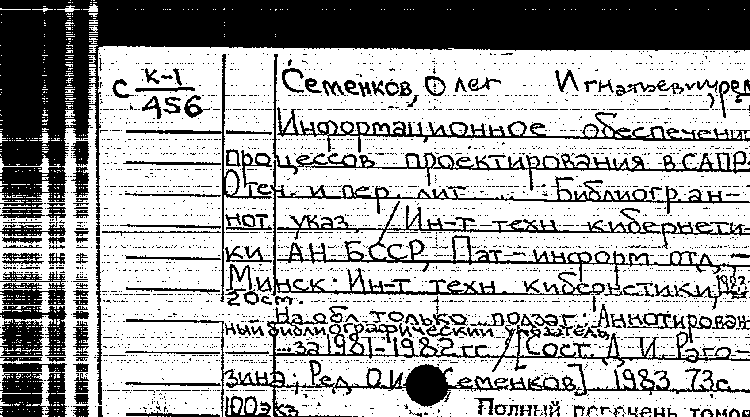 С К-1
456
Семенков, Олег Игнатьевич, ред
Информационное обеспечени
процессов проектирования в САПР.
Отеч. и пер. лит ... : Библиогр. ан-
нот. указ. / Ин-т техн. кибернети-
ки АН БССР, Пат.-информ. отд. –
Минск : Ин-т техн. кибернетики, 1983
20 см.
На обл. только подзаг.: Аннотирован-
ный библиографический указатель
... за 1981-1982 гг. / [Сост. Д. И. Раго-
зина ; Ред. О.И. Семенков] 1983. 73 с.
100 экз.
Полный перечень томов